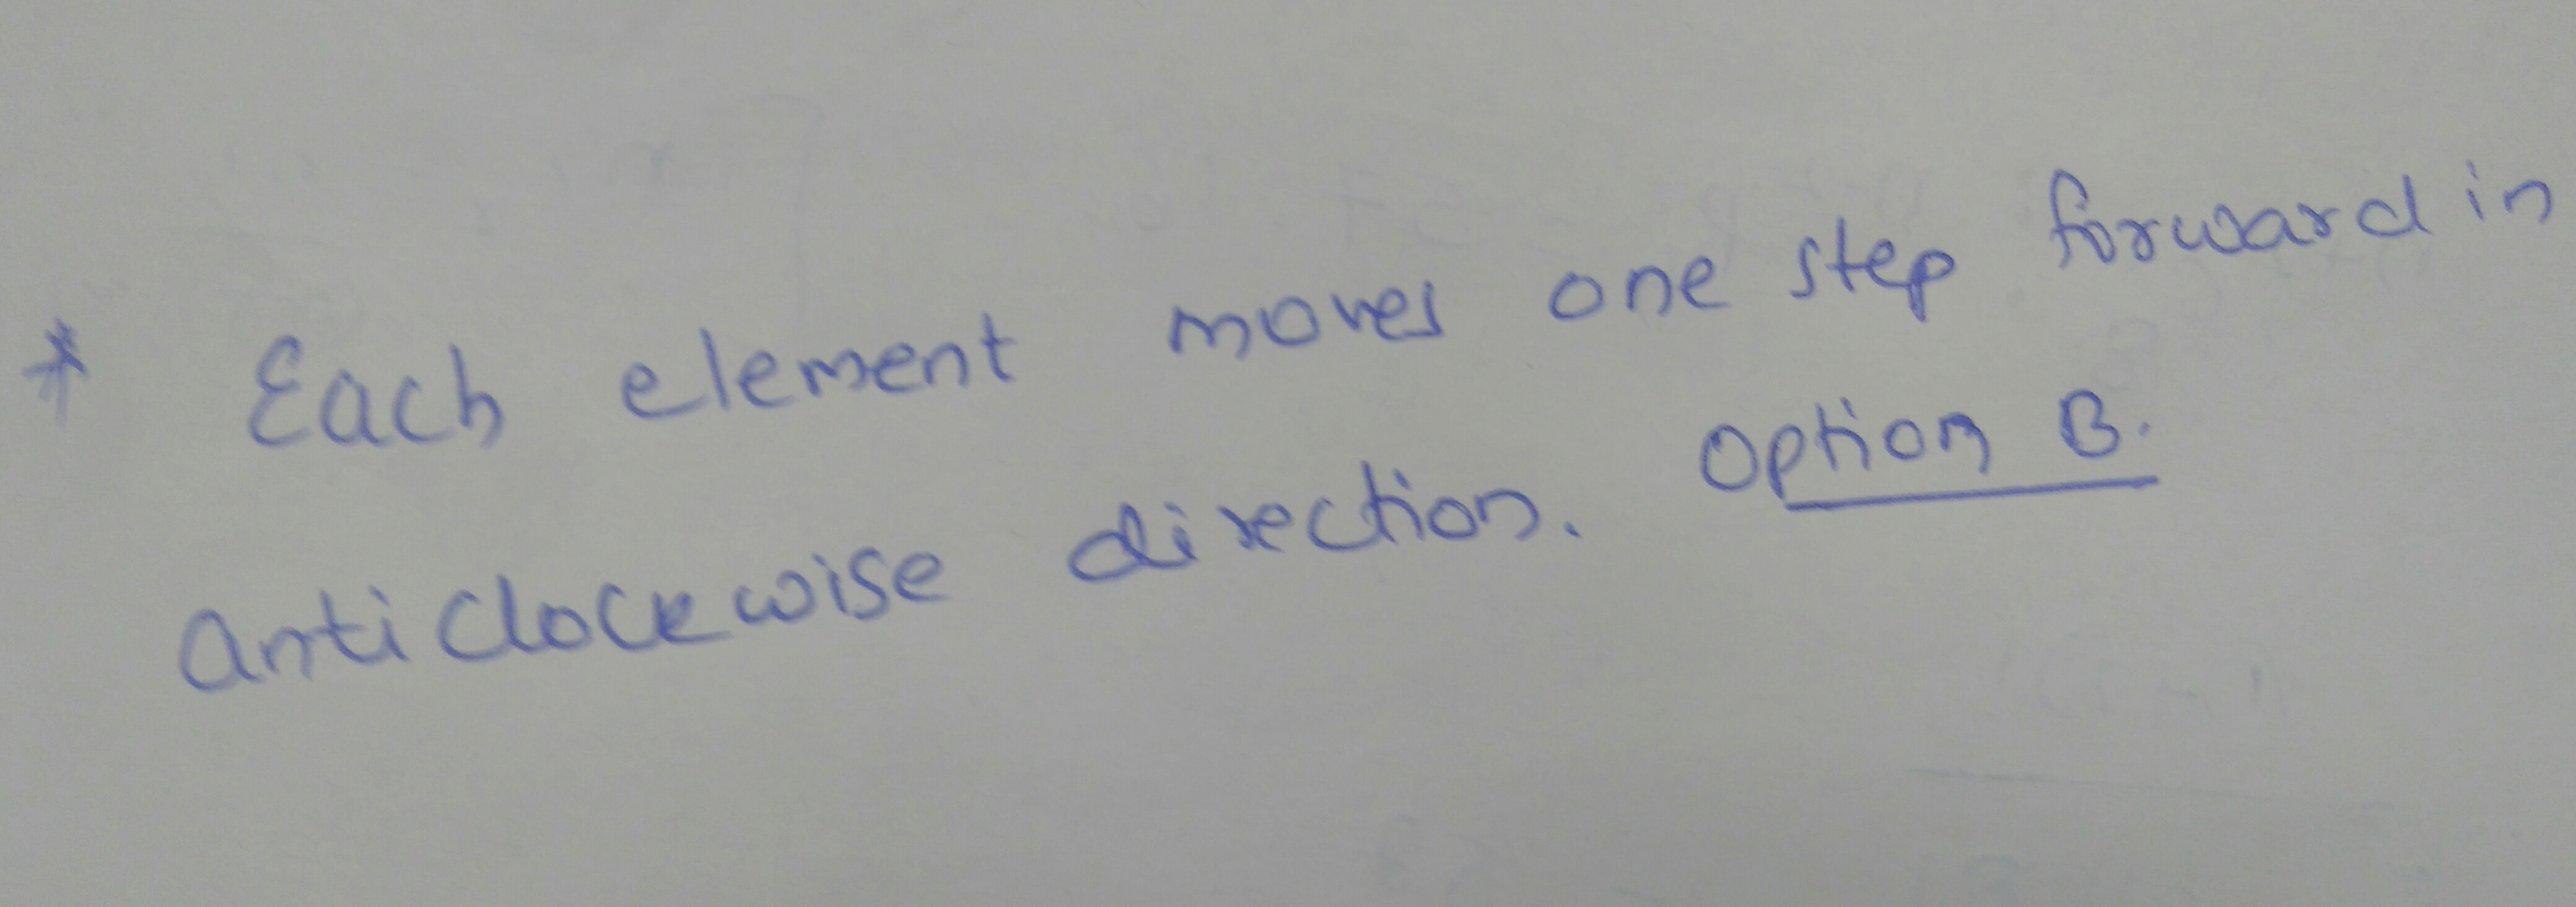 * Each element moves one step forward in
anticlockwise direction. Option B.